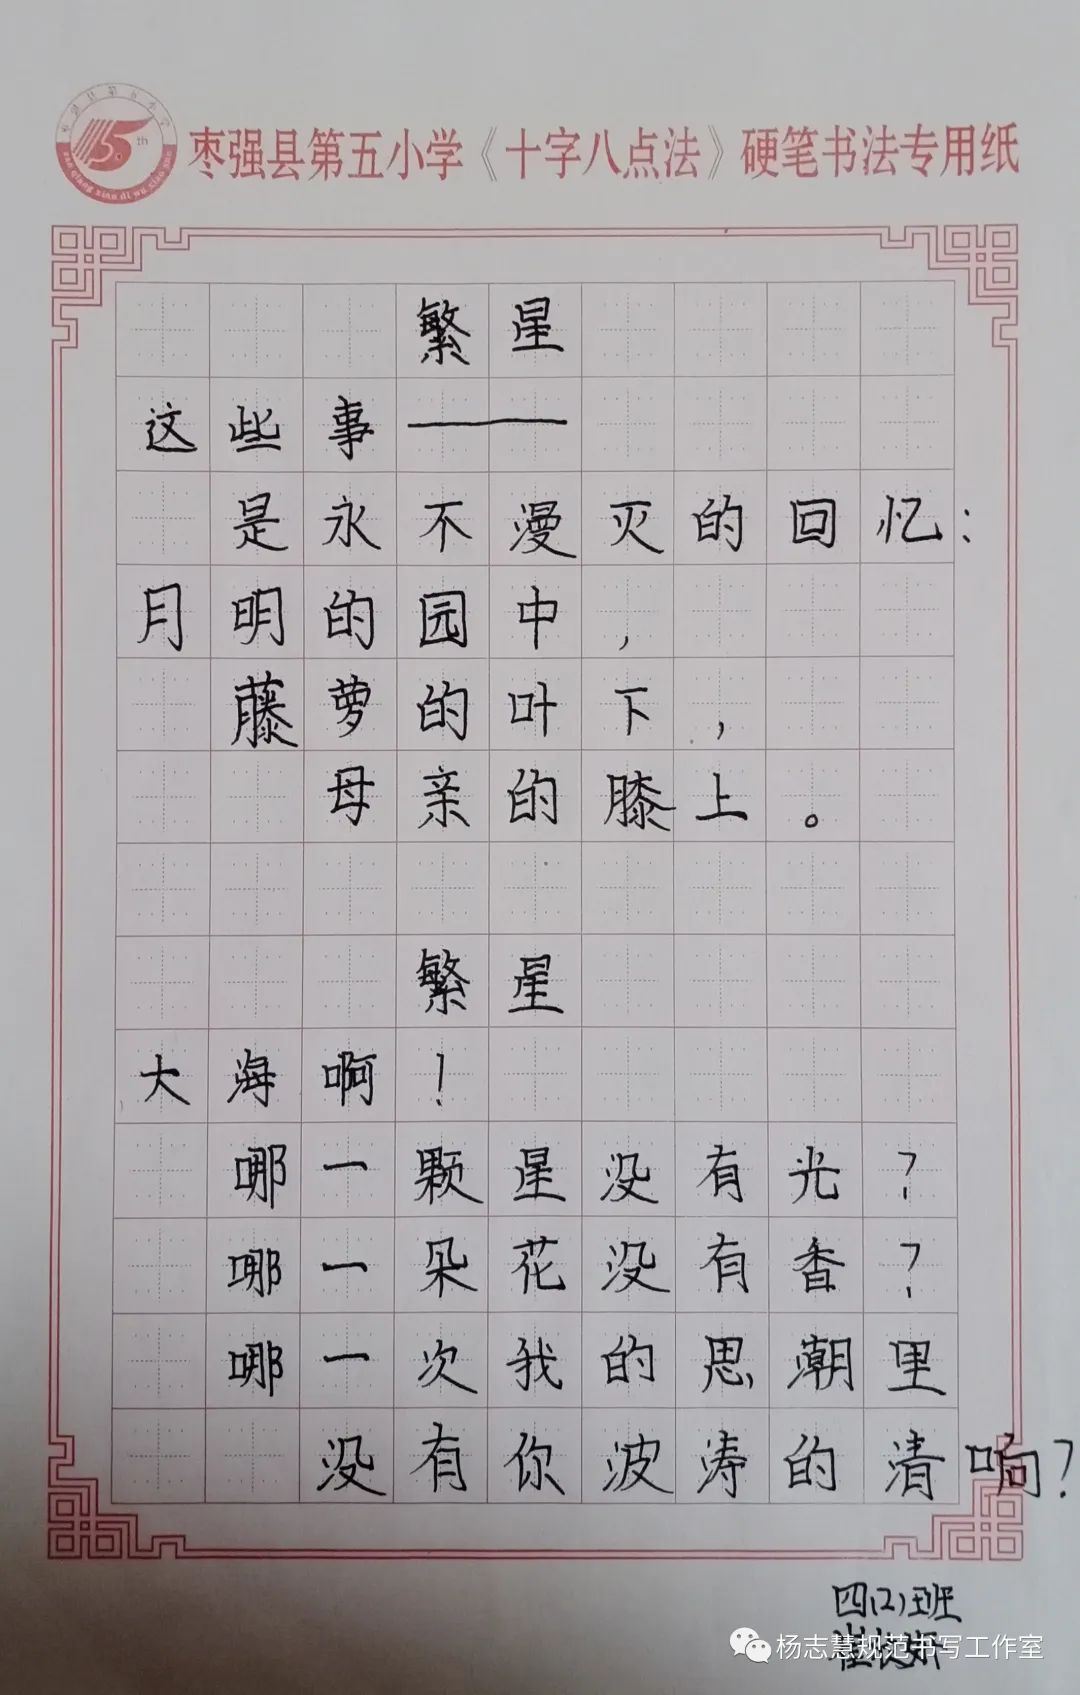 枣强县第五小学《十字八点法》硬笔书法专用纸
繁星
这些事——
是永不漫灭的回忆：
月明的园中，
藤萝的叶下，
母亲的膝上。
繁星
大海啊！
哪一颗星没有光？
哪一朵花没有香？
哪一次我的思潮里
没有你波涛的清响？
四(2)班
杨志慧规范书写工作室